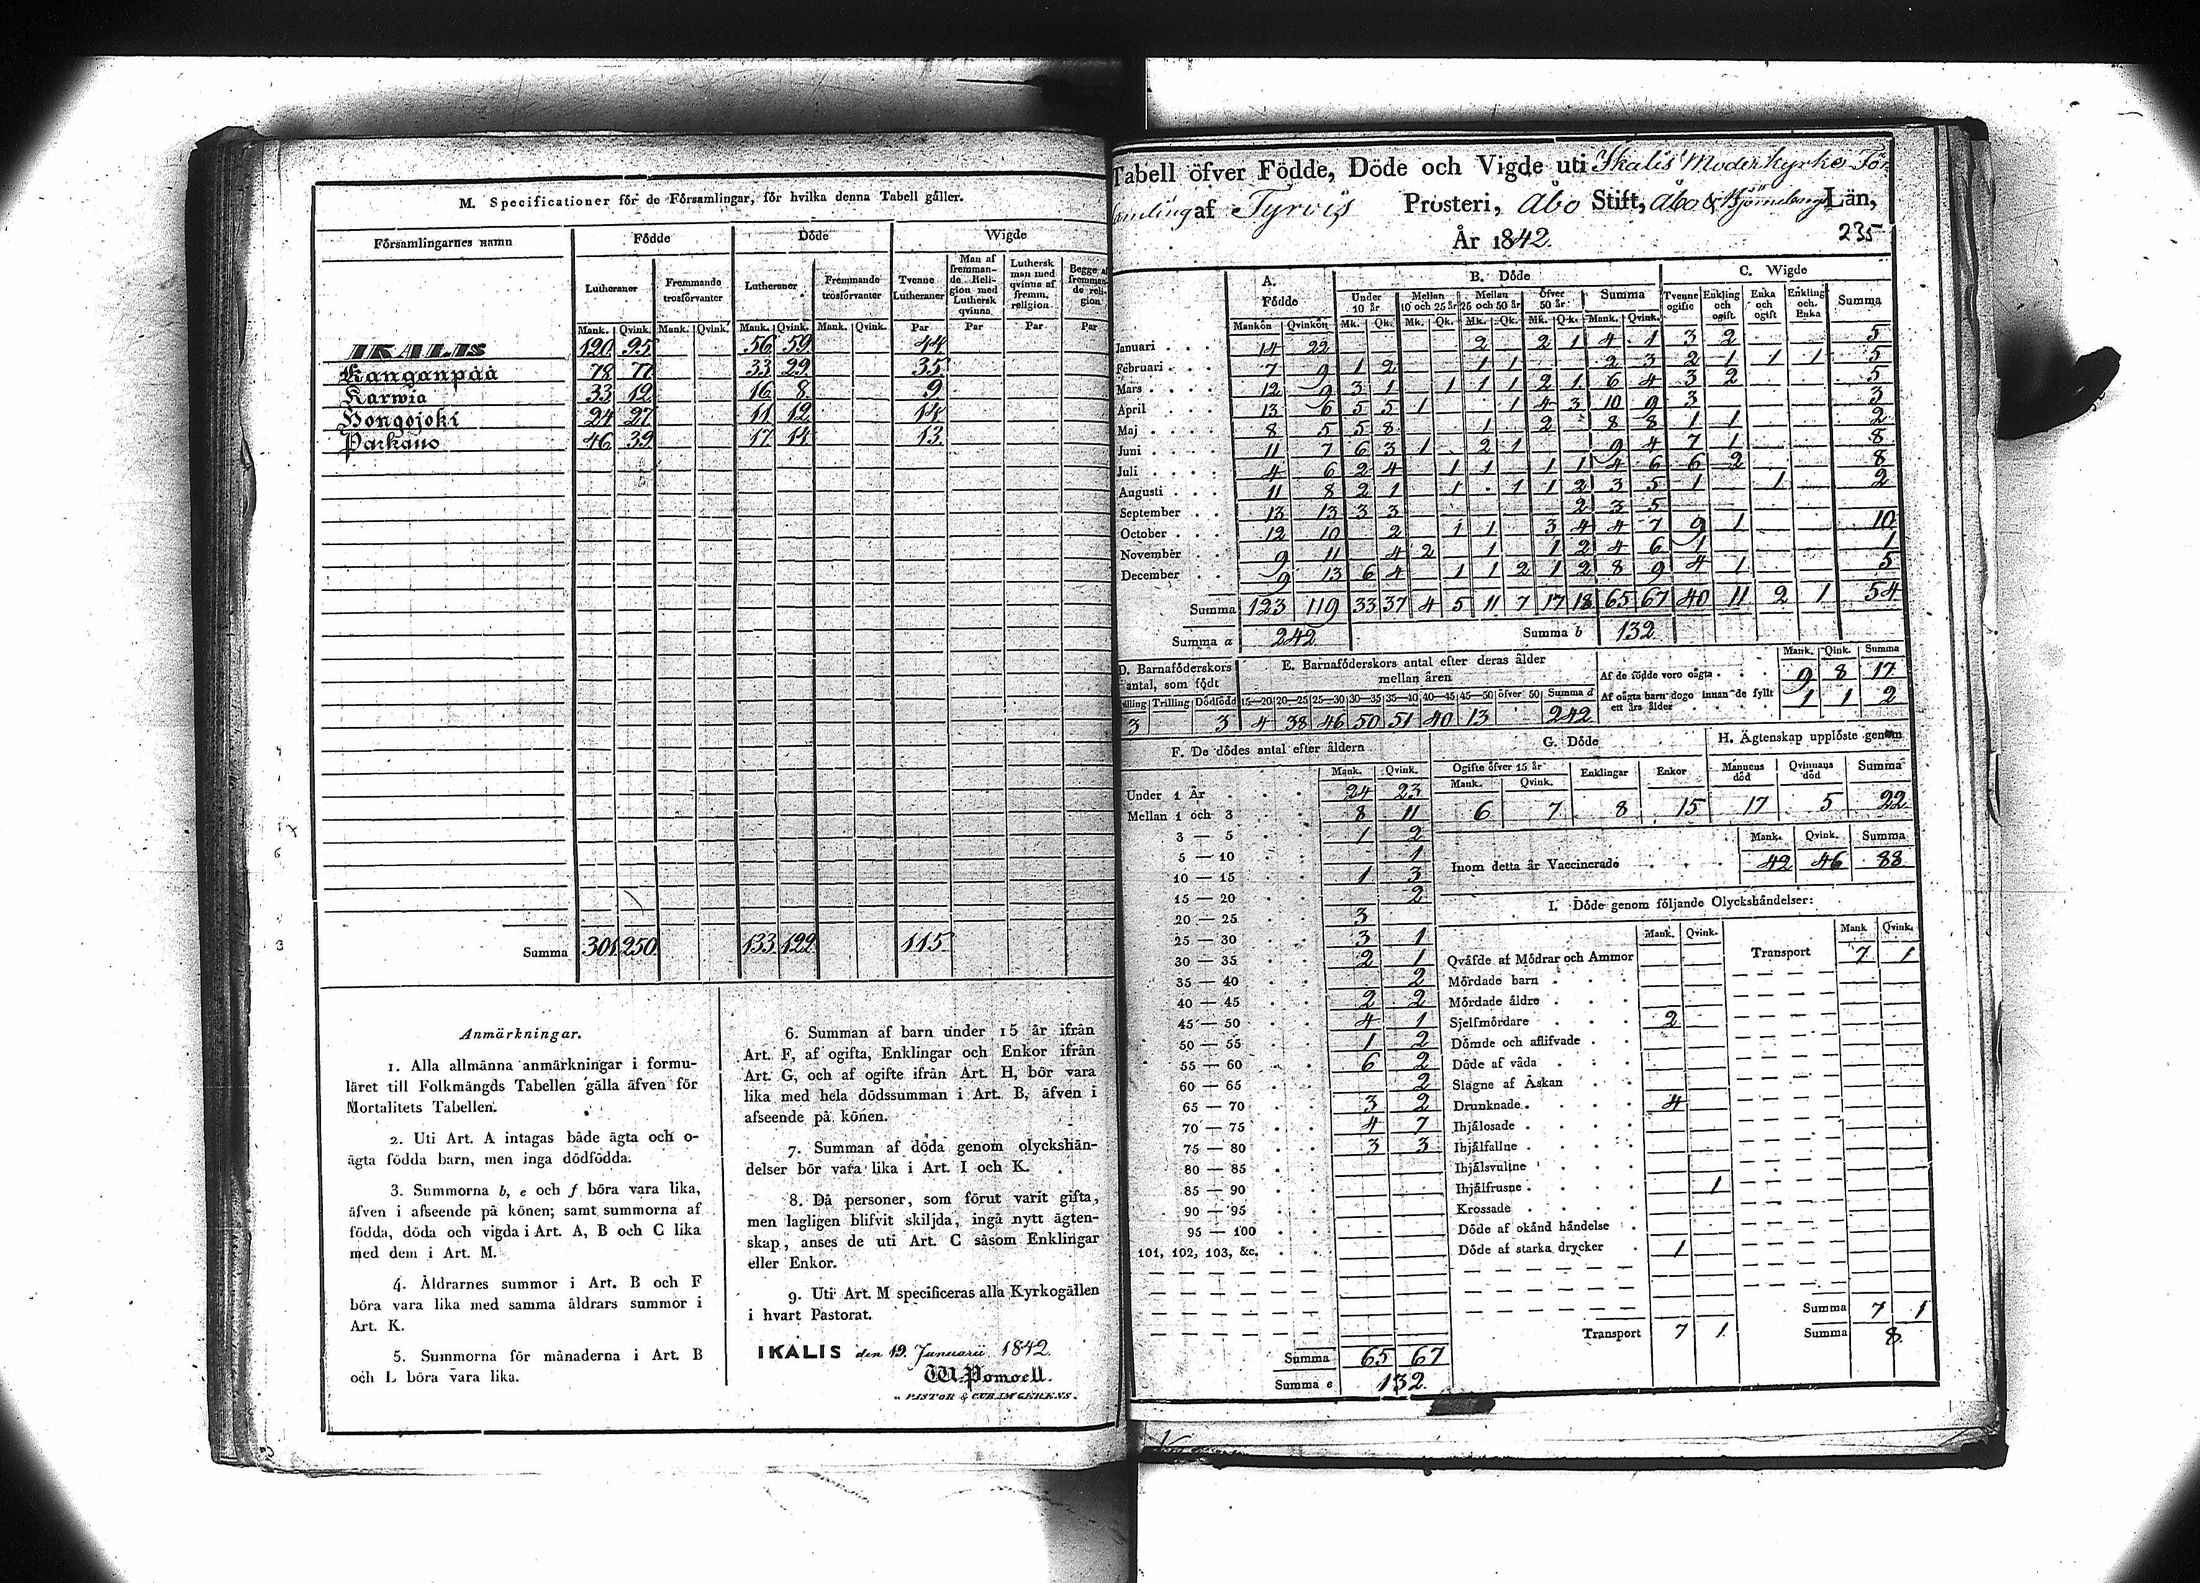 M. Specificationer för de Församlingar, för hvilka denna Tabell gäller.
Församlingarnes namn Födde Döde Wigde
Lutheraner Fremmande trosförvanter Lutheraner Fremmande trosförvanter Tvenne Lutheraner Man af fremmande Religion med Luthersk qvinna Luthersk man med qvinna af fremm. religion Begge af fremmande religion
Mank. Qvink. Mank. Qvink. Mank. Qvink. Mank. Qvink. Par Par Par Par
IKALIS 120 95 56 59 44
Kanganpää 78 77 33 29 35
Karwia 33 12 16 8 9
Hongojoki 24 27 11 12 14
Parkano 46 39 17 14 13
Summa 301 250 133 122 115
Anmärkningar.
1. Alla allmänna anmärkningar i formu-
läret till Folkmängds Tabellen gälla äfven för
Mortalitets Tabellen.
2. Uti Art. A intagas både ägta och o-
ägta födda barn, men inga dödfödda.
3. Summorna b, e och f böra vara lika,
äfven i afseende på könen; samt summorna af
födda, döda och vigda i Art. A, B och C lika
med dem i Art. M.
4. Åldrarnes summor i Art. B och F
böra vara lika med samma åldrars summor i
Art. K.
5. Summorna för månaderna i Art. B
och L böra vara lika.
6. Summan af barn under 15 år ifrån
Art. F, af ogifta, Enklingar och Enkor ifrån
Art. G, och af ogifte ifrån Art. H, bör vara
lika med hela dödssumman i Art. B, äfven i
afseende på könen.
7. Summan af döda genom olyckshän-
delser bör vara lika i Art. I och K.
8. Då personer, som förut varit gifta,
men lagligen blifvit skiljda, ingå nytt ägten-
skap, anses de uti Art. C såsom Enklingar
eller Enkor.
9. Uti Art. M specificeras alla Kyrkogällen
i hvart Pastorat.
IKALIS den 19. Januarii 1842.
W. Pomoell.
PASTOR & CURAM GERENS.
Tabell öfver Födde, Döde och Vigde uti Ikalis Moderkyrko För
amling af Tyrvis Prosteri, Åbo Stift, Åbo & Björneborgs Län,
År 1842. 235
A. Födde B. Döde C. Wigde
Under 10 år Mellan 10 och 25 år Mellan 25 och 50 år Öfver 50 år Summa Tvenne ogifte Enkling och ogift. Enka och ogift Enkling och Enka Summa
Mankön Qvinkön Mk. Qk. Mk. Qk. Mk. Qk. Mk. Qk. Mank. Qvink.
Januari 14 22 2 2 1 4 1 3 2 5
Februari 7 9 1 2 1 1 2 3 2 1 1 1 5
Mars 12 9 3 1 1 1 1 2 1 6 4 3 2 5
April 13 6 5 5 1 1 4 3 10 9 3 3
Maj 8 5 5 8 1 2 8 8 1 1 2
Juni 11 7 6 3 1 2 1 9 4 7 1 8
Juli 4 6 2 4 1 1 1 1 4 6 6 2 8
Augusti 11 8 2 1 1 1 1 2 3 5 1 1 2
September 13 13 3 3 2 3 5
October 12 10 2 1 1 3 4 4 7 9 1 10
November 9 11 4 2 1 1 2 4 6 1 1
December 9 13 6 4 1 1 2 1 2 8 9 4 1 5
Summa 123 119 33 37 4 5 11 7 17 18 65 67 40 11 2 1 54
Summa a 242 Summa b 132
D. Barnaföderskors antal, som födt
illing Trilling Dödfödd
3 3
E. Barnaföderskors antal efter deras ålder mellan åren
15—20 20—25 25—30 30—35 35—40 40—45 45—50 öfver 50 Summa d
4 38 46 50 51 40 13 242
Mank. Qink. Summa
Af de födde voro oägta 9 8 17
Af oägta barn dogo innan de fyllt ett års ålder 1 1 2
F. De dödes antal efter åldern
Mank. Qvink.
Under 1 År 24 23
Mellan 1 och 3 8 11
3 — 5 1 2
5 — 10 1
10 — 15 1 3
15 — 20 2
20 — 25 3
25 — 30 3 1
30 — 35 2 1
35 — 40 2
40 — 45 2 2
45 — 50 4 1
50 — 55 1 2
55 — 60 6 2
60 — 65 2
65 — 70 3 2
70 — 75 4 7
75 — 80 3 3
80 — 85
85 — 90
90 — 95
95 — 100
101, 102, 103, &c.
Summa 65 67
Summa e 132
G. Döde
Ogifte öfver 15 år Enklingar Enkor
Mank. Qvink.
6 7 8 15
H. Ägtenskap upplöste genom
Mannens död Qvinnans död Summa
17 5 22
Mank. Qvink. Summa
Inom detta år Vaccinerade 42 46 88
I. Döde genom följande Olyckshändelser:
Mank. Qvink. Mank Qvink.
Qväfde af Mödrar och Ammor Transport 7 1
Mördade barn
Mördade äldre
Sjelfmördare 2
Dömde och aflifvade
Döde af våda
Slagne af Åskan
Drunknade 4
Ihjälosade
Ihjälfallne
Ihjälsvultne
Ihjälfrusne 1
Krossade
Döde af okänd händelse
Döde af starka drycker 1
Summa 7 1
Transport 7 1 Summa 8